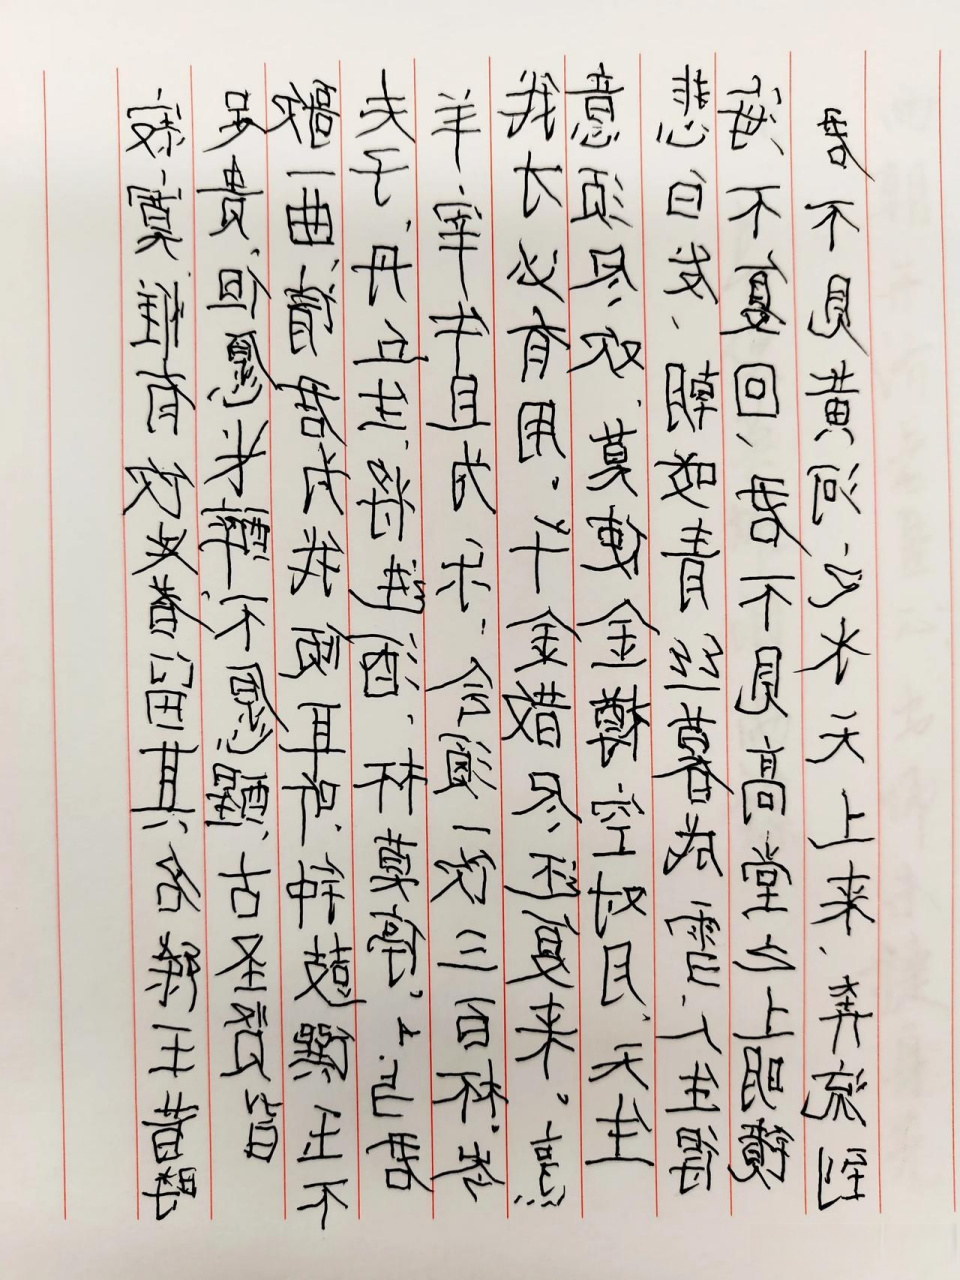 君不見黄河之水天上来、奔流到
海不复回、君不見高堂之上明镜
悲白发、朝如青丝暮为雪、人生得
意须尽欢、莫使金樽空对月、天生
我才必有用。千金散尽还复来。烹
羊宰牛且为乐、会须一饮三百杯、岑
夫子、丹丘生、将进酒、杯莫停。与君
歌一曲、请君为我倾耳听、钟鼓馔玉不
足贵、但愿长醉不愿醒、古圣贤皆
寂寞唯有饮者留其名陈王昔時